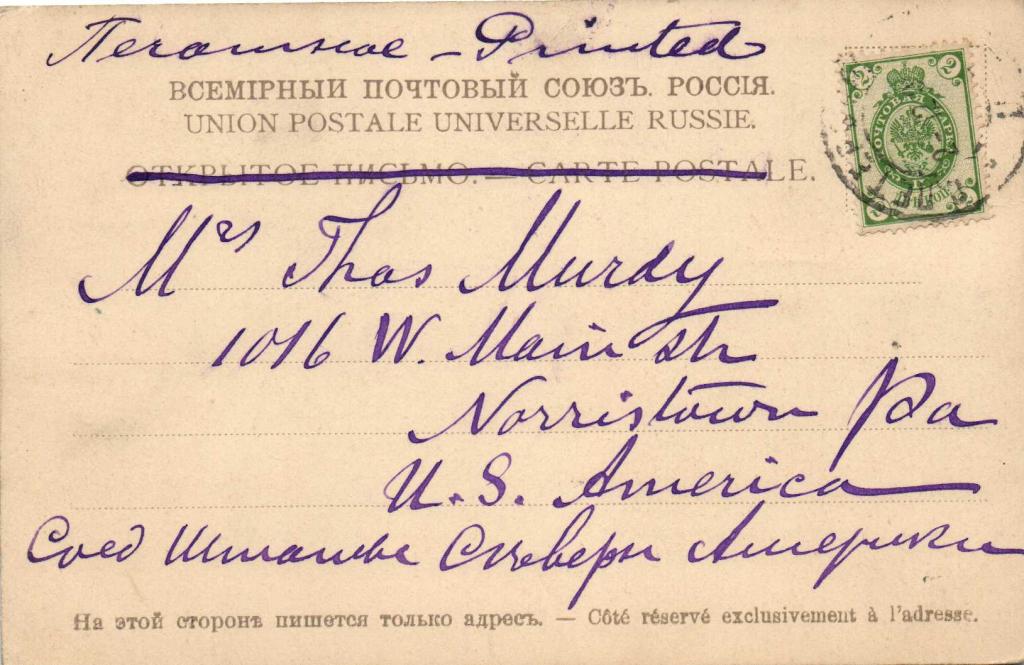 Печатное – Printed
ВСЕМІРНЫЙ ПОЧТОВЫЙ СОЮЗЪ. РОССІЯ.
UNION POSTALE UNIVERSELLE RUSSIE.
ОТКРЫТОЕ ПИСЬМО. — CARTE POSTALE.
2 2
ПОЧТОВАЯ МАРКА
Mrs Thos Murdy
1016 W. Main str
Norristown Pa
U. S. America
Соед Штаты Сѣверн Америки
На этой сторонѣ пишется только адресъ. — Côté réservé exclusivement à l'adresse.